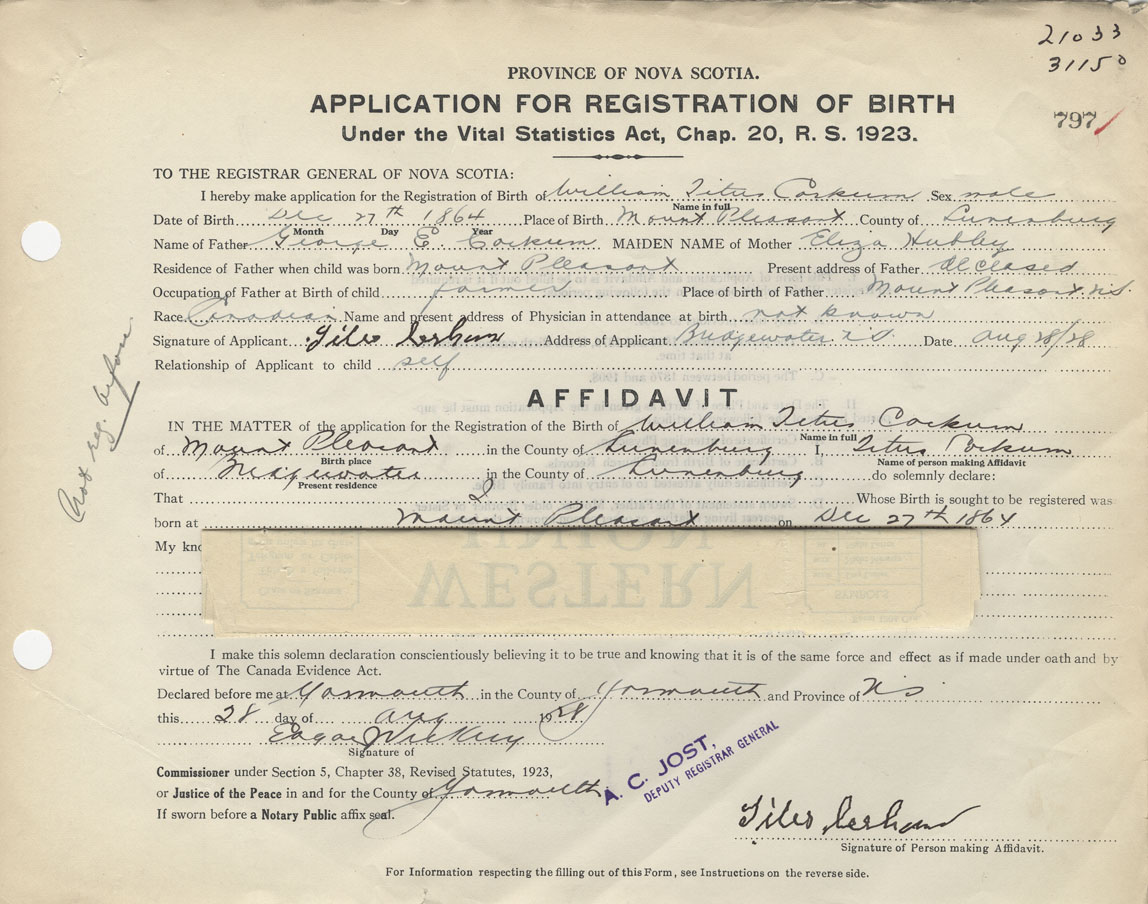 21033
31150
797/
PROVINCE OF NOVA SCOTIA.
APPLICATION FOR REGISTRATION OF BIRTH
Under the Vital Statistics Act, Chap. 20, R. S. 1923.
TO THE REGISTRAR GENERAL OF NOVA SCOTIA:
I hereby make application for the Registration of Birth of William Titus Corkum Sex male
Name in full
Date of Birth Dec 27th 1864 Place of Birth Mount Pleasant County of Lunenburg
Month Day Year
Name of Father George E Corkum MAIDEN NAME of Mother Eliza Hubley
Residence of Father when child was born Mount Pleasant Present address of Father deceased
Occupation of Father at Birth of child farmer Place of birth of Father Mount Pleasant N.S.
Race Canadian Name and present address of Physician in attendance at birth not known
Signature of Applicant Address of Applicant Bridgewater N.S. Date Aug 28/28
Relationship of Applicant to child self
Not reg. before
AFFIDAVIT
IN THE MATTER of the application for the Registration of the Birth of William Titus Corkum
Name in full
of Mount Pleasant in the County of Lunenburg I, Titus Corkum
Birth place Name of person making Affidavit
of Bridgewater in the County of Lunenburg do solemnly declare:
Present residence
That I Whose Birth is sought to be registered was
born at Mount Pleasant on Dec 27th 1864
My kno
WESTERN
UNION
SYMBOLS
I make this solemn declaration conscientiously believing it to be true and knowing that it is of the same force and effect as if made under oath and by
virtue of The Canada Evidence Act.
Declared before me at Yarmouth in the County of Yarmouth and Province of NS
this 28 day of Aug 1928
Edgar
Signature of
Commissioner under Section 5, Chapter 38, Revised Statutes, 1923,
or Justice of the Peace in and for the County of Yarmouth
If sworn before a Notary Public affix seal.
A. C. JOST,
DEPUTY REGISTRAR GENERAL
Signature of Person making Affidavit.
For Information respecting the filling out of this Form, see Instructions on the reverse side.